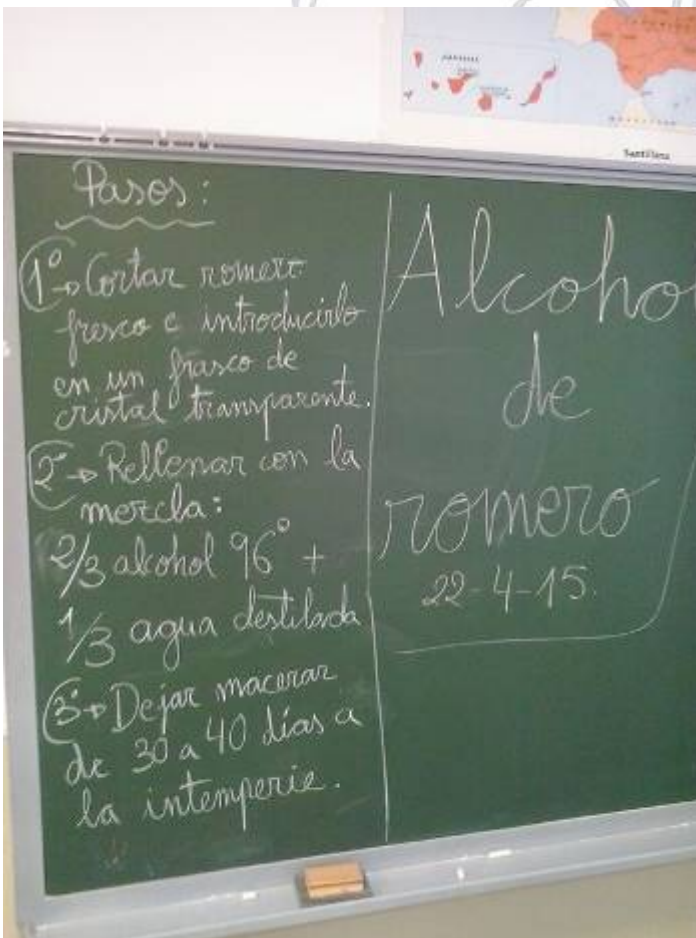 Santillana
Pasos:
1º→ Cortar romero
fresco e introducirlo
en un frasco de
cristal transparente.
2º→ Rellenar con la
mezcla:
2/3 alcohol 96º +
1/3 agua destilada
3º→ Dejar macerar
de 30 a 40 días a
la intemperie.
Alcoho
de
romero
22-4-15.